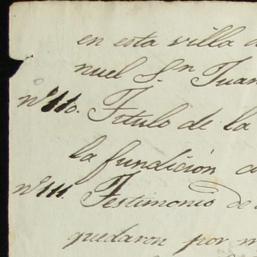 en esta villa d
nuel Sn. Juan
nº 110. Titulo de la
la fundición c
nº 111. Testimonio de
quedaron por m